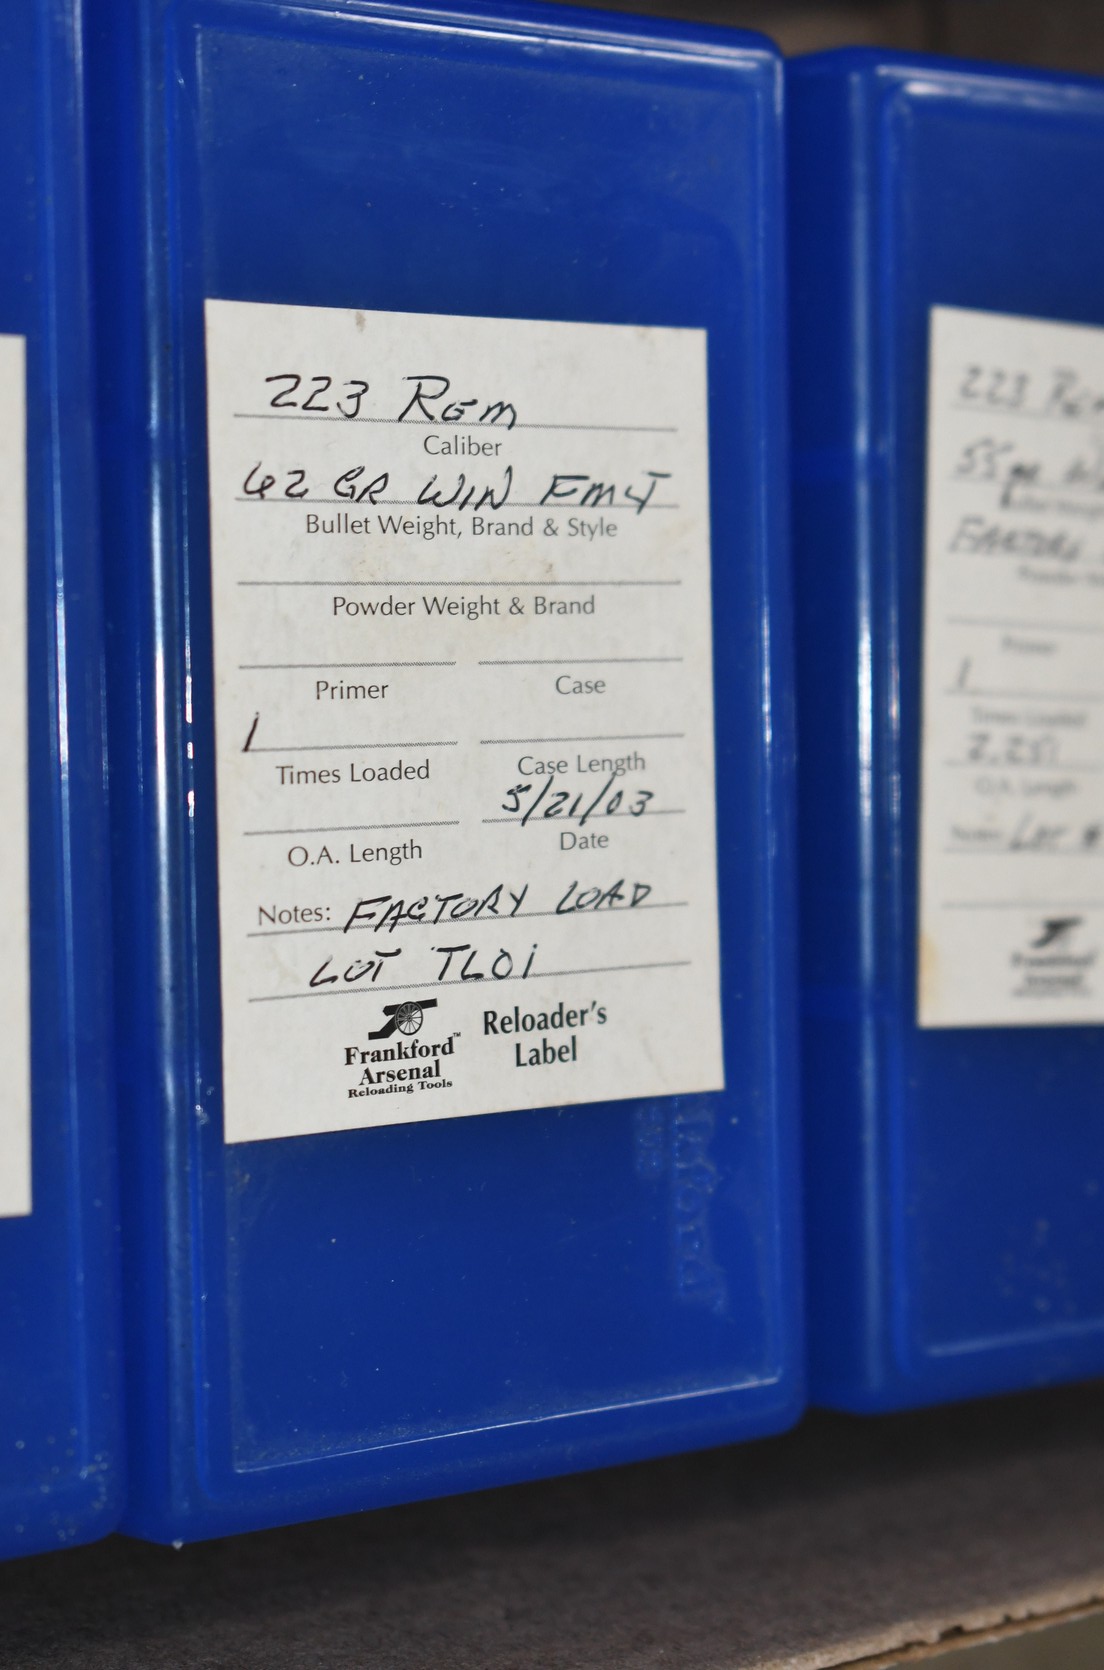 223 Rem
Caliber
62 GR WIN FMJ
Bullet Weight, Brand & Style
Powder Weight & Brand
Primer Case
1
Times Loaded Case Length
5/21/03
O.A. Length Date
Notes: FACTORY LOAD
LOT TL01
Frankford™ Reloader's
Arsenal Label
Reloading Tools
223
55gr
FACTORY
Primer
1
Times Loaded
2.251
O.A. Length
Notes: LOT #
Frankford
Arsenal